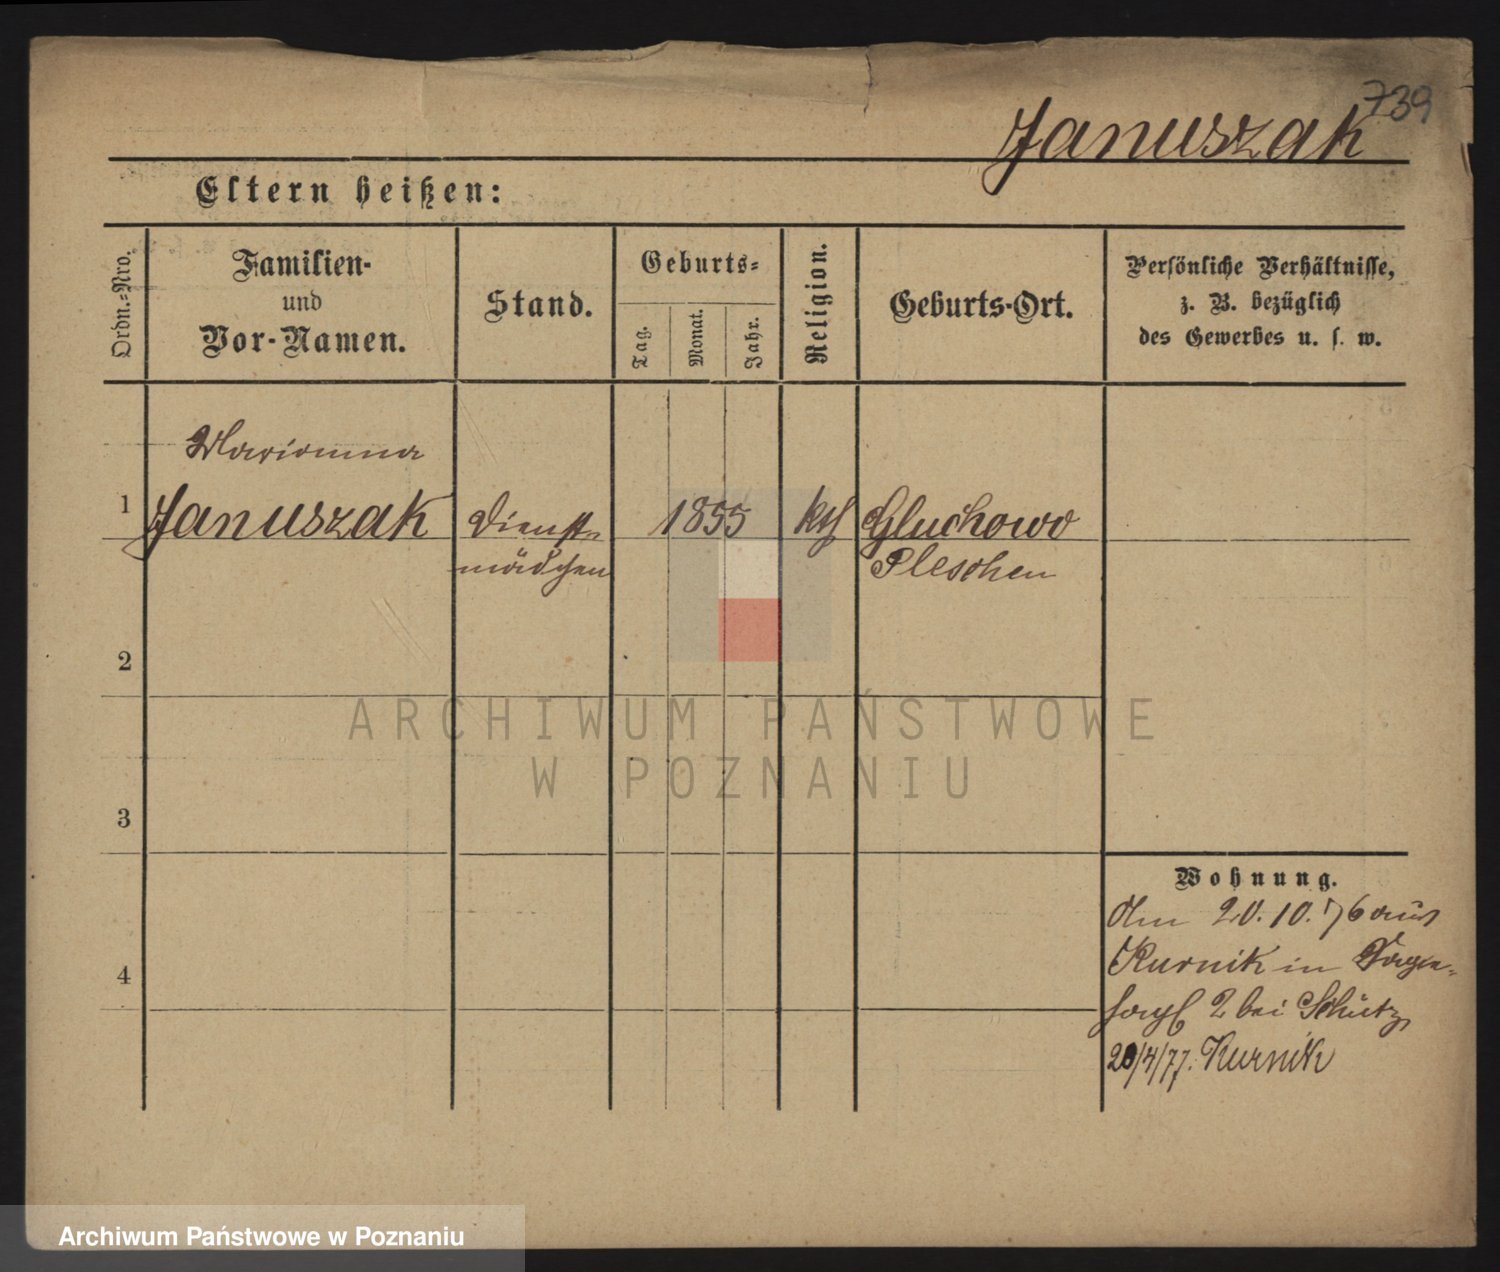 739
Januszak
Eltern heißen:
Ordn.-Nro.
Familien-
und
Vor-Namen.
Stand.
Geburts-
Tag.
Monat.
Jahr.
Religion.
Geburts-Ort.
Persönliche Verhältnisse,
z. B. bezüglich
des Gewerbes u. s. w.
Marianna
1 Januszak Dienst- 1855 kth Gluchowo
mädchen Pleschen
2
ARCHIWUM PAŃSTWOWE
W POZNANIU
3
Wohnung.
20.10.76 aus
4 Kurnik in
2 bei Schütz
20/4/77. Kurnik
Archiwum Państwowe w Poznaniu